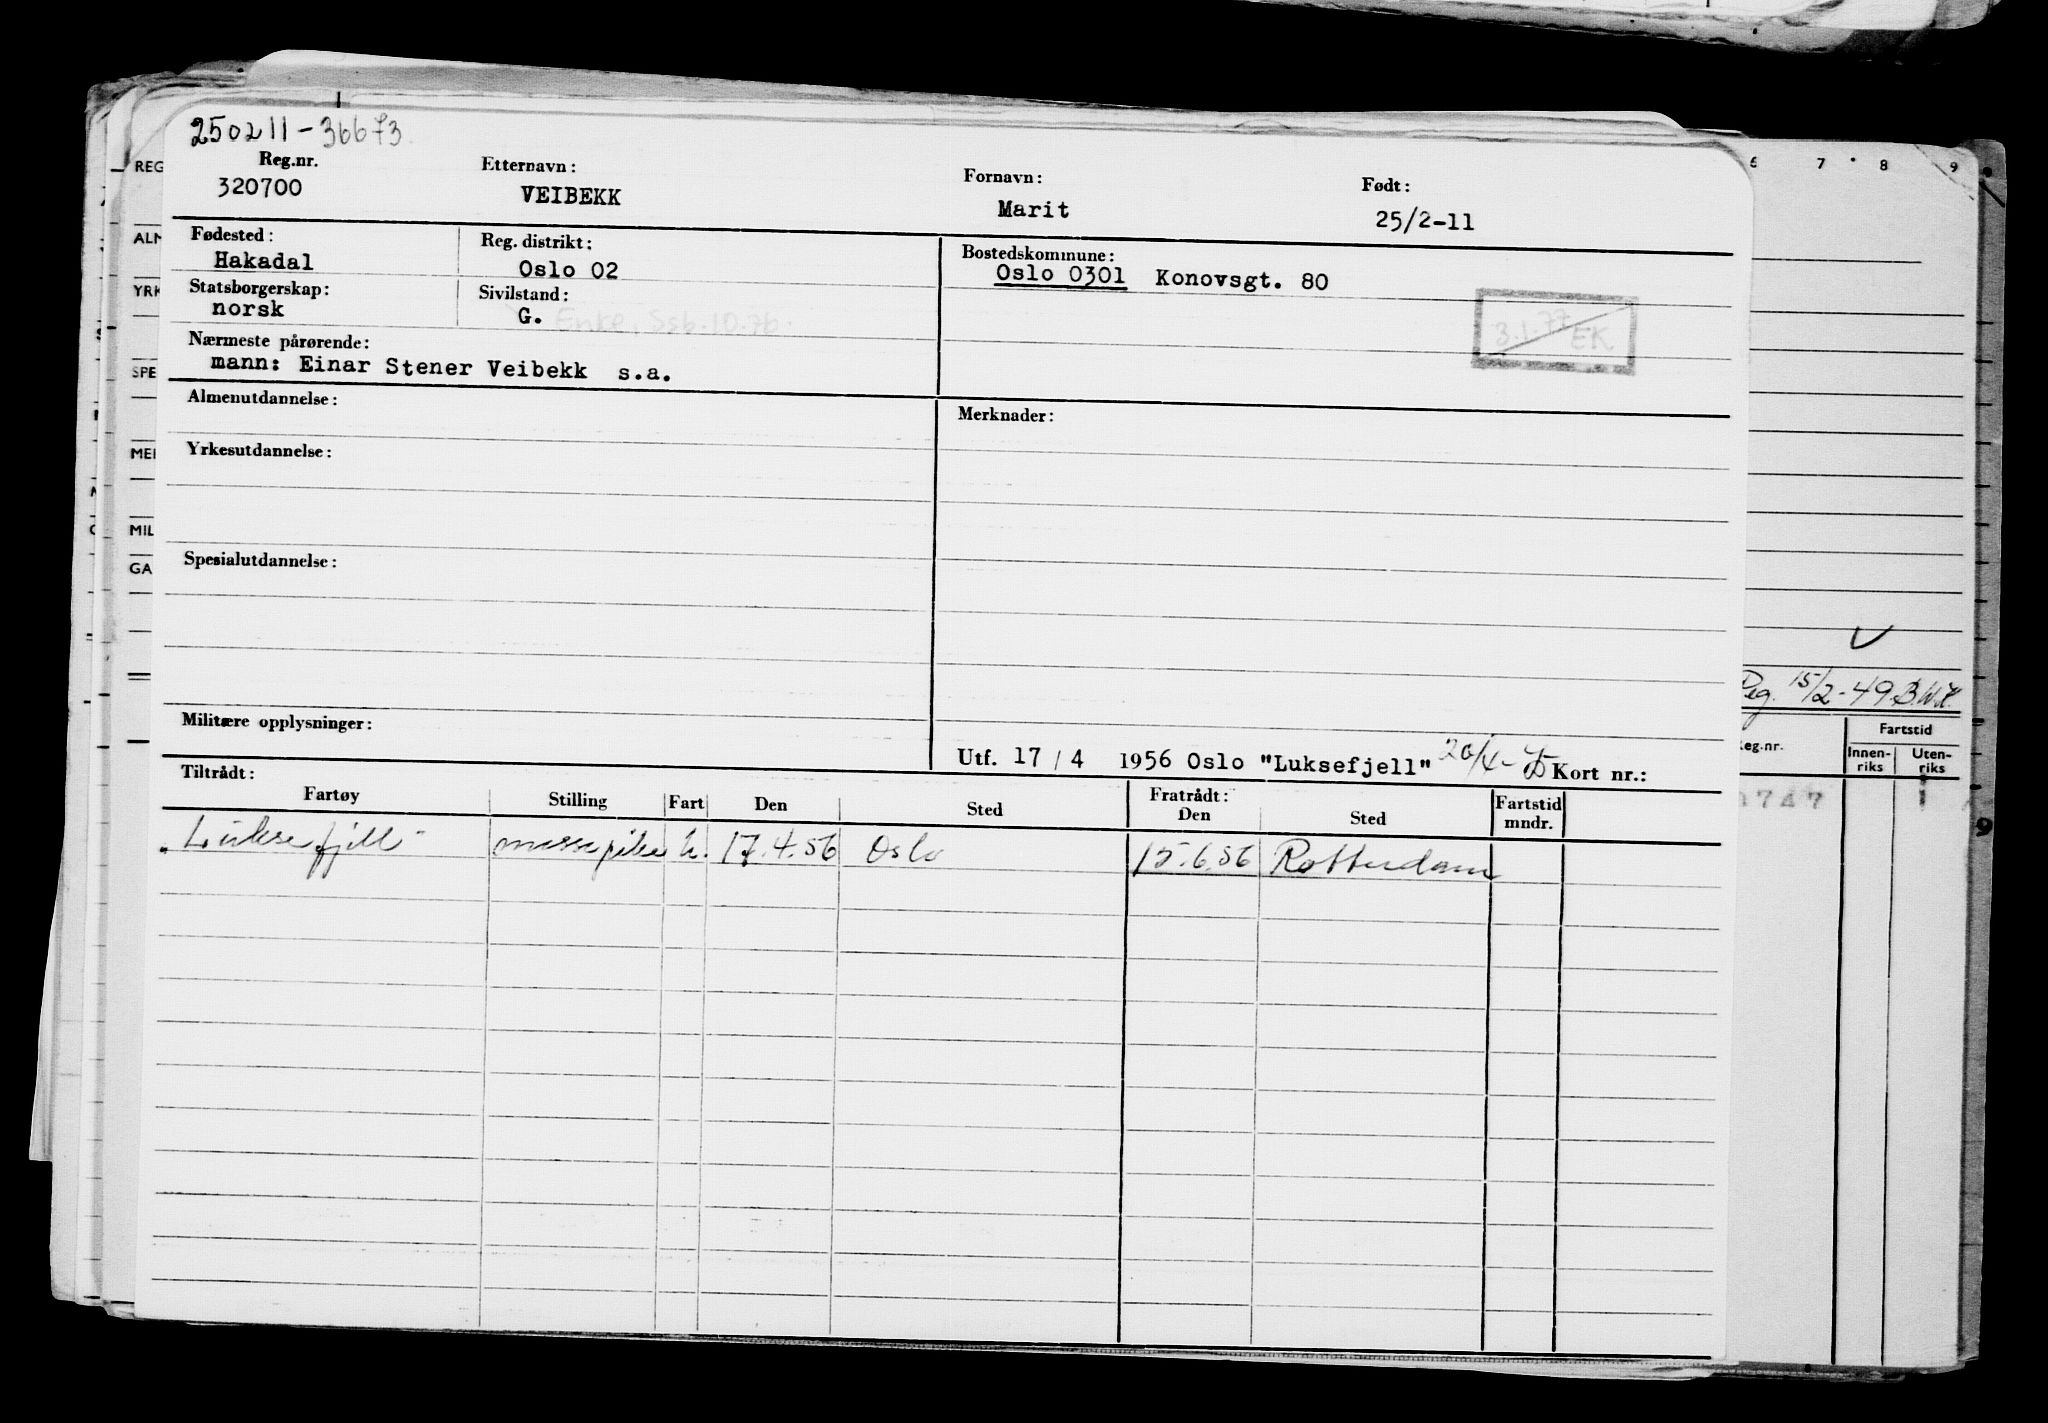 250211-36673
Reg.nr. Etternavn: Fornavn: Født:
320700 VEIBEKK Marit 25/2-11
Fødested: Reg. distrikt: Bostedskommune:
Hakadal Oslo 02 Oslo 0301 Konovsgt. 80
Statsborgerskap: Sivilstand:
norsk G. Enke, Ssb. 10.76.
3.1.77 EK
Nærmeste pårørende:
mann: Einar Stener Veibekk s.a.
Almenutdannelse: Merknader:
Yrkesutdannelse:
Spesialutdannelse:
Militære opplysninger:
Utf. 17/4 1956 Oslo "Luksefjell" 20/4- Kort nr.:
Tiltrådt: Fratrådt:
Fartøy Stilling Fart Den Sted Den Sted Fartstid mndr.
"Luksefjell" messepike u. 17.4.56 Oslo 15.6.56 Rotterdam
6 7 8 9
REG
ALM
YRK
SPE
MER
MIL
GA
Reg. 15/2-49
Reg.nr. Fartstid
Innen-riks Uten-riks
747 1
9